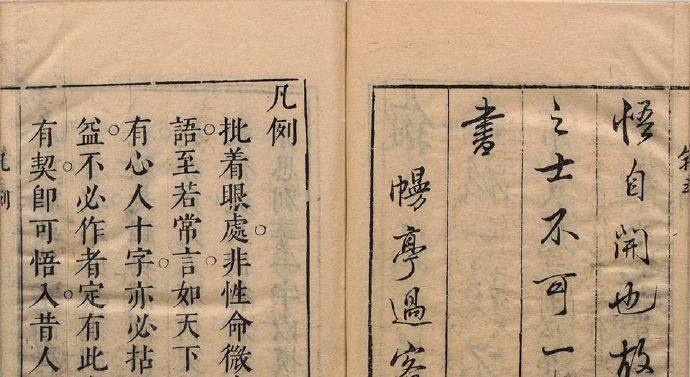 悟自開也故
之士不可一
書
幔亭過客
凡例
批着眼處。非性命微
語至若常言。如天下
有心人十字。亦必拈
盆。不必作者定有此
有契。卽可悟入。昔人
凡例